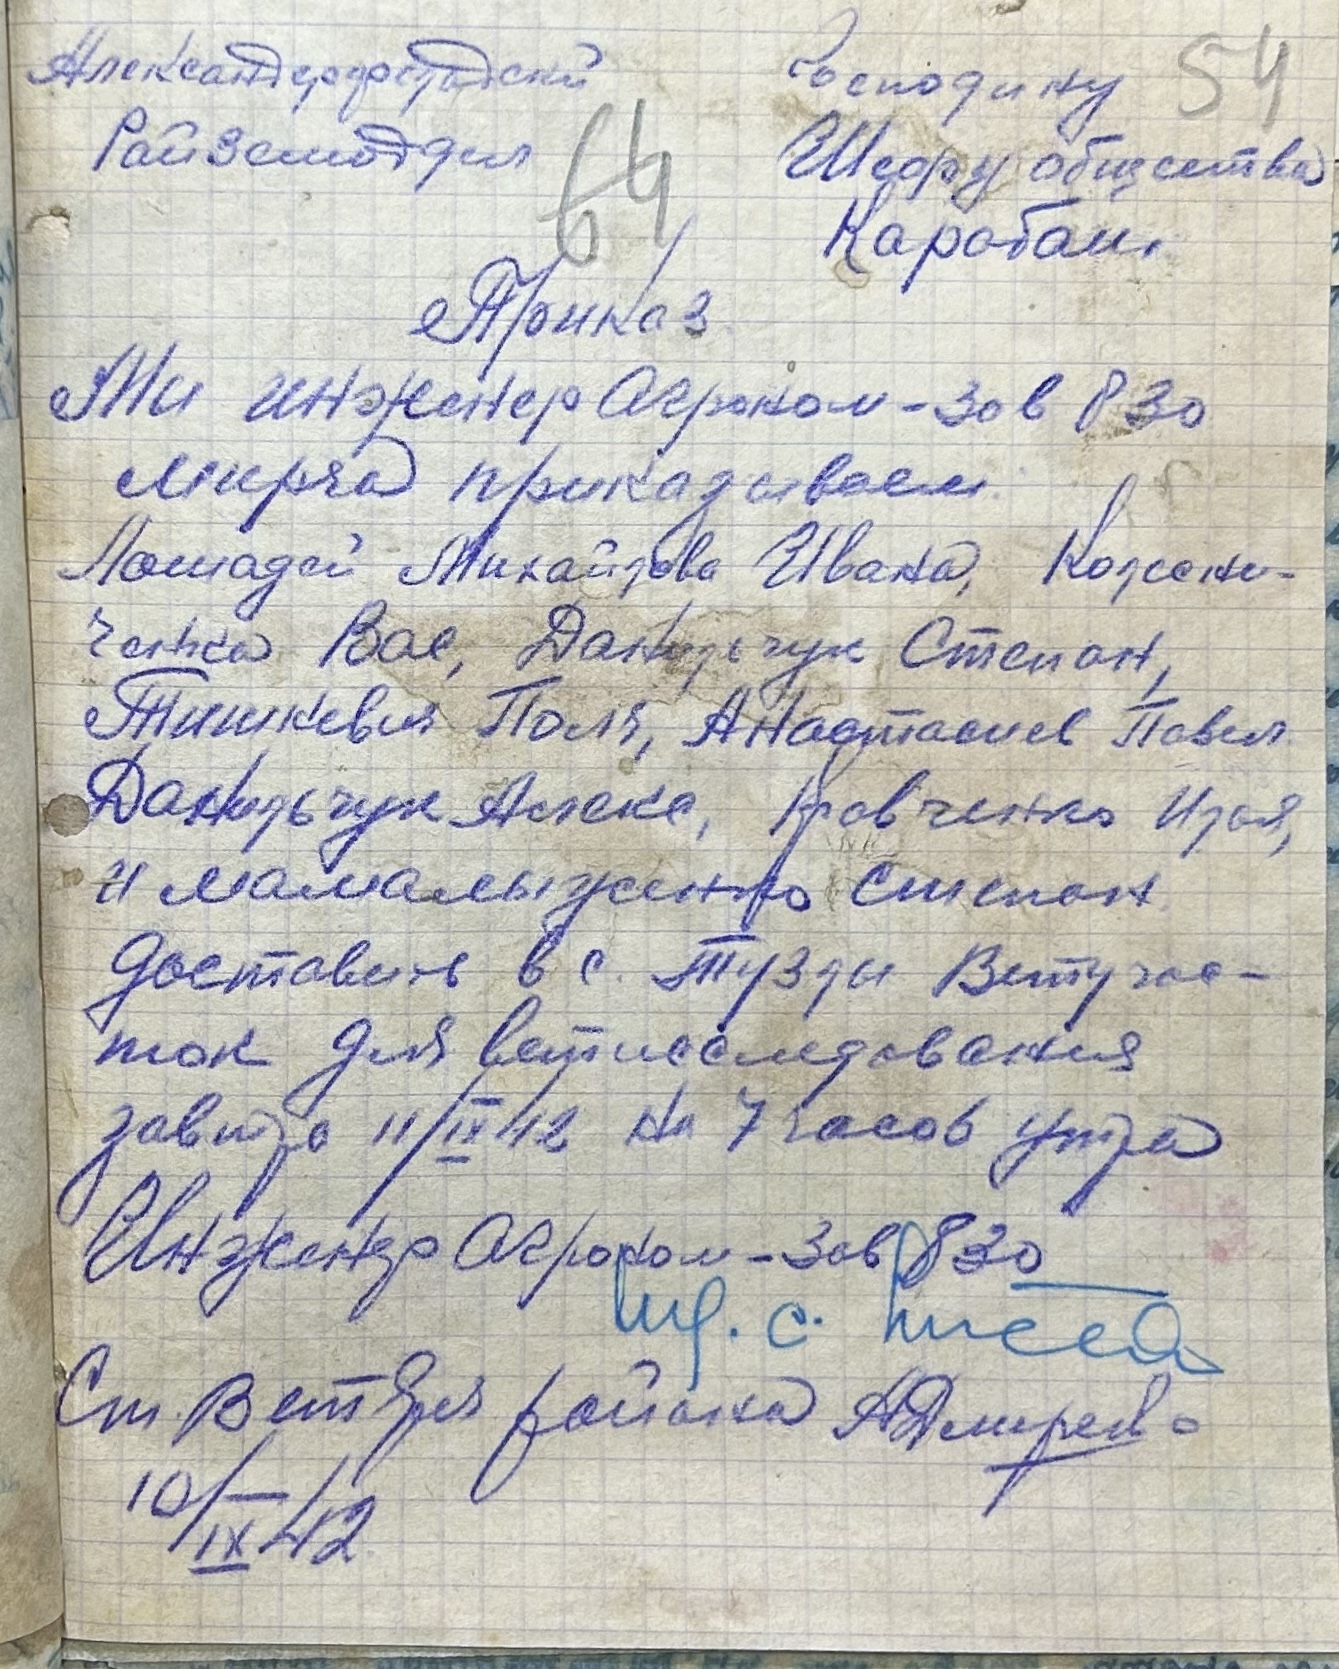 Александерфрдтадский
Райземотдел
64
Господину
54
Шефу общества
Карабан.
Приказ
Ми инженер Агроном-зов 830
мирча приказываем
Лошадей Михайлова Ивана, Кожени-
ченка Вас, Данильчук Степан,
Тишкевич Поля, Анастасиев Павел
Данильчук Алекс, Кравченко Илья,
и мамалыженко степан
доставить в с. Тузлы Ветучас-
ток для ветисследования
завтра 11/IX 42 на 7 часов утра
Инженер Агроном-зов 830
Ст. Ветврач района
10/IX 42